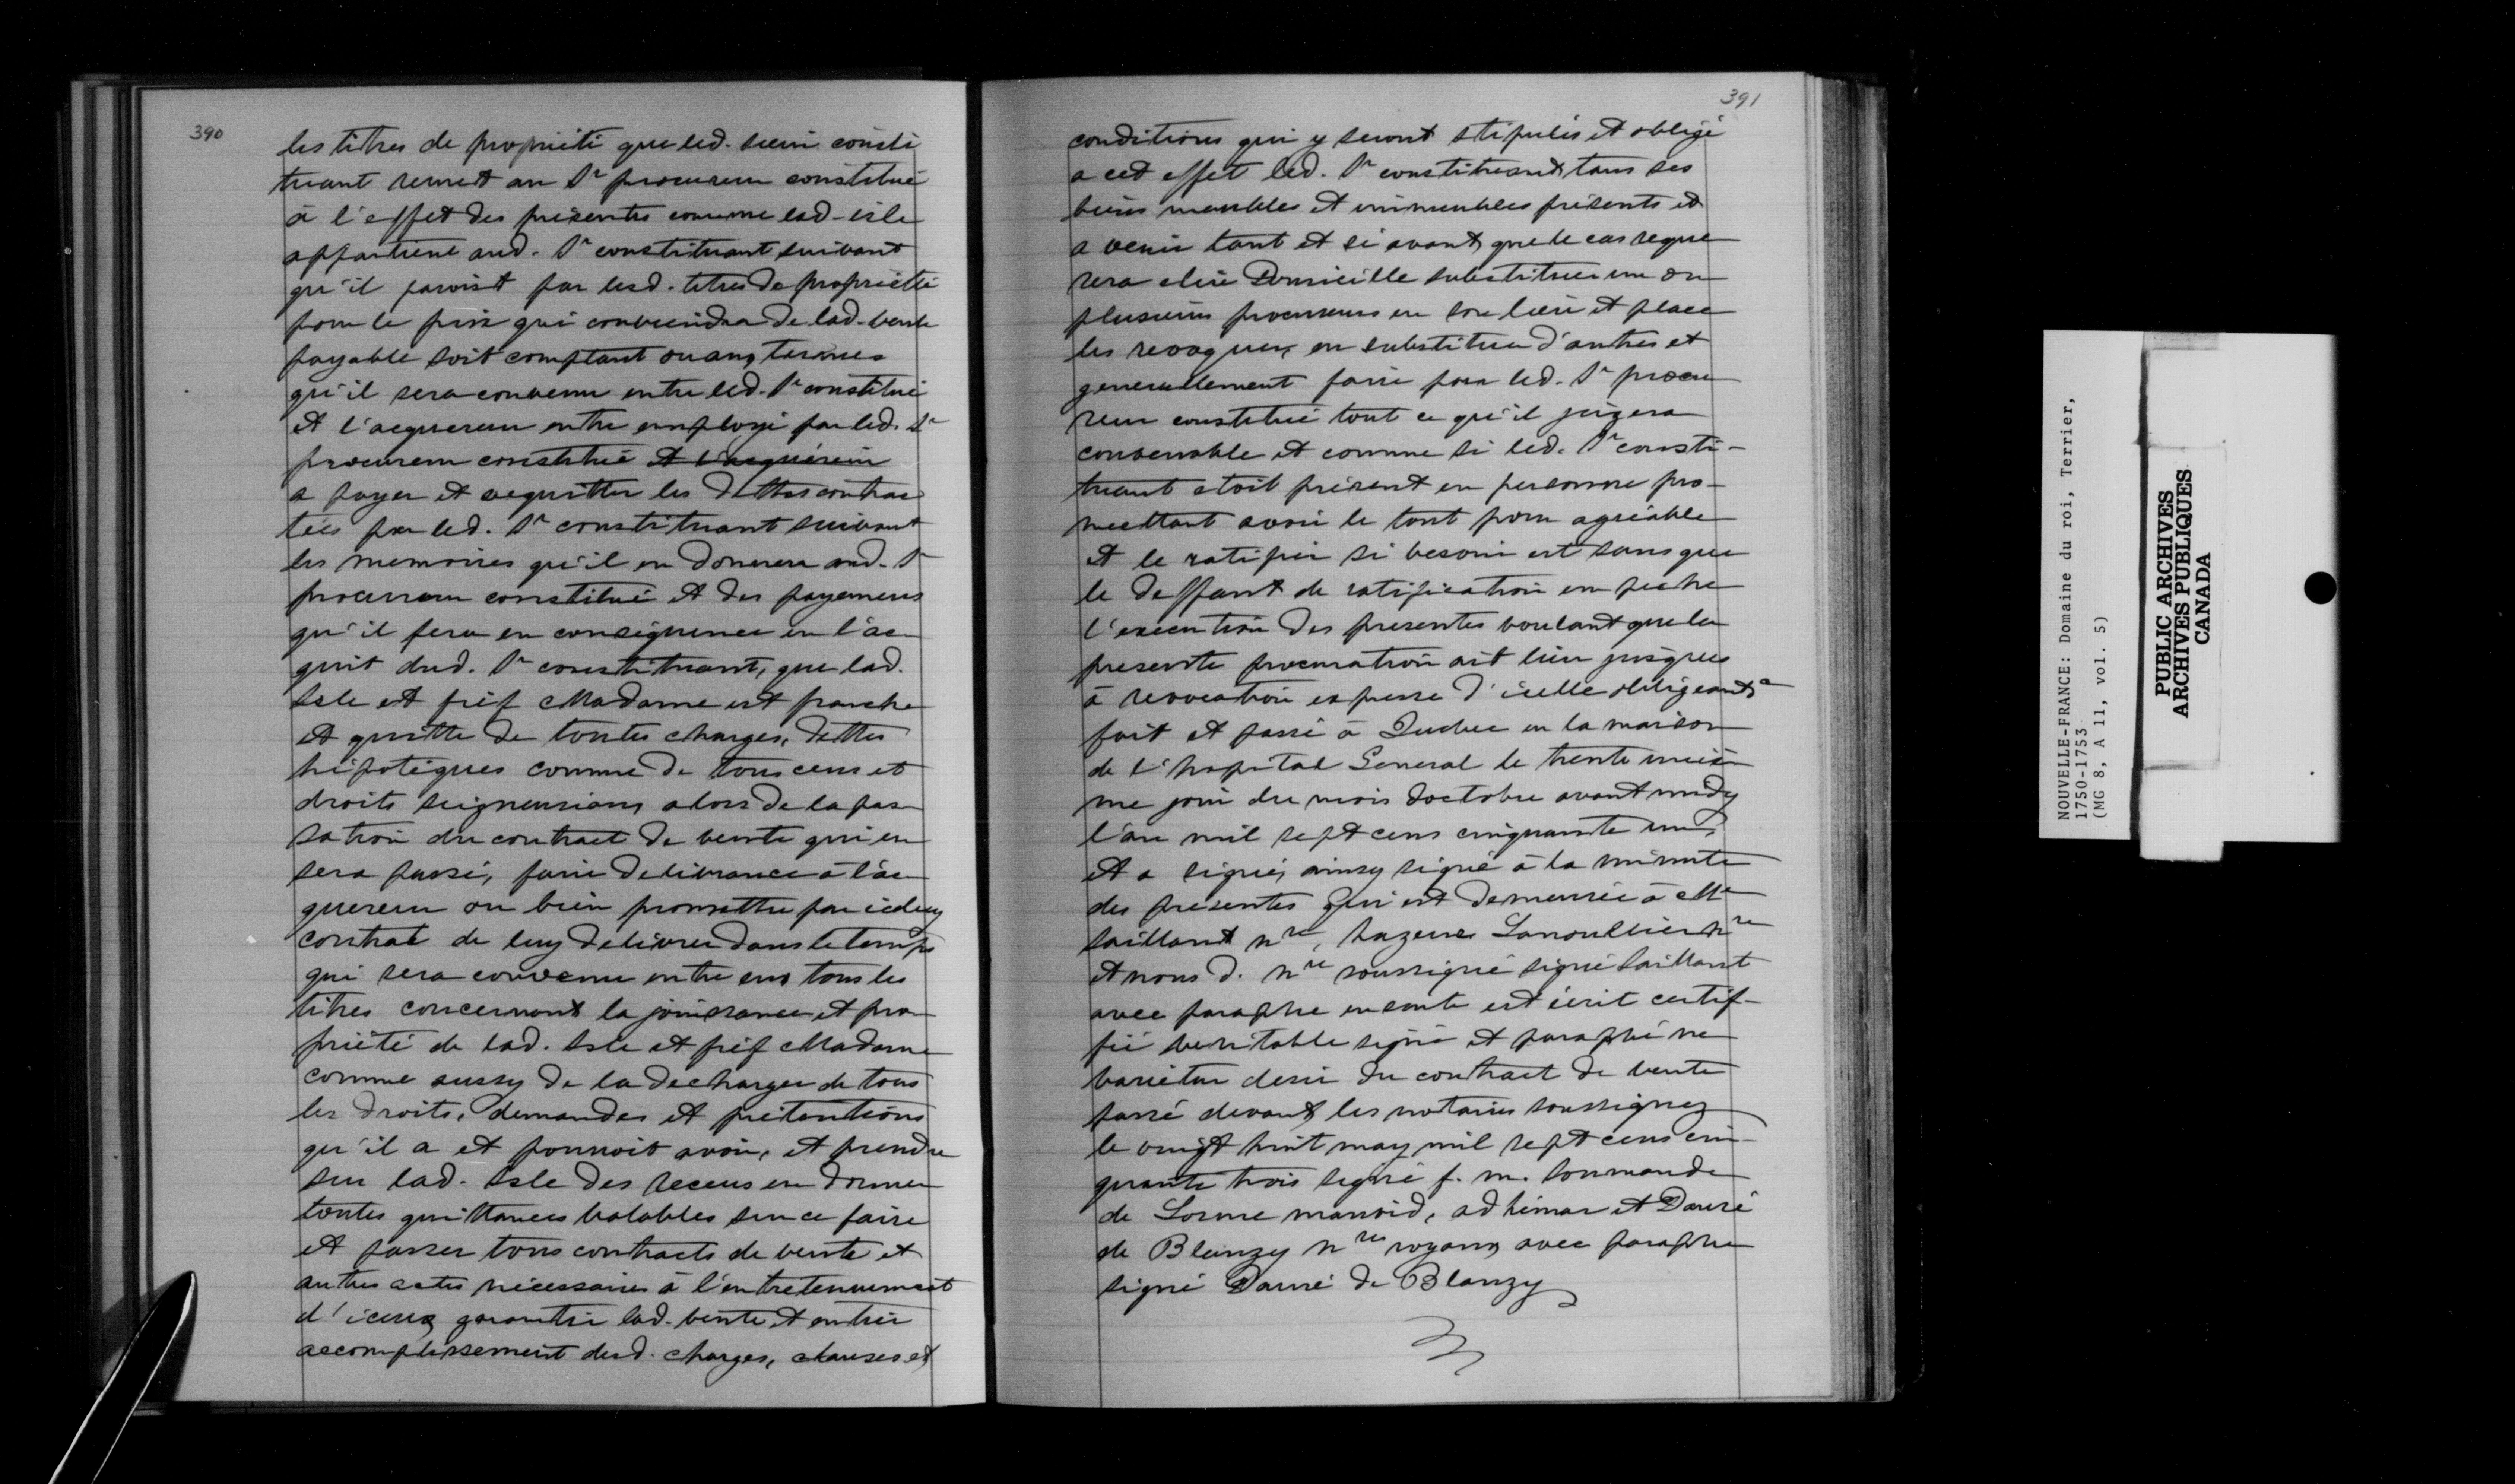 390
les titres de propriété que led. sieur consti
tuant remet au Sr procureur constitué
à l'effet des présentes comme lad. isle
appartient aud. Sr constituant suivant
qu'il paroist par lesd. titres de propriétté
pour le prix qui conviendra de lad. vente
payable soit comptant ou aux termes
qu'il sera convenu entre led. Sr constitué
et l'acquereur entre employé par led. Sr
procureur constitué et l'acquéreur
a payer et acquitter les dettes contrac
tées par led. Sr constituant suivant
les memoires qu'il en donnera aud. Sr
procureur constitué et des payemens
qu'il fera en conséquence en l'ac
quit dud. Sr constituant, que lad.
Isle et fief Madame est franche
et quitte de toutes charges, dettes
hipotèques comme de tous cens et
droits seigneuriaux alors de la pas
sation du contract de vente qui en
sera passé, faire delivrance à l'ac
quereur ou bien promettre par iceluy
contrat de luy delivrer dans le temps
qui sera convenu entre eux tous les
titres concernant la jouissance et pro
priété de lad. Isle et fief Madame
comme aussy de la decharger de tous
les droits, demandes et prétentions
qu'il a et pourroit avoir, et prendre
sur lad. Isle des receus en donner
toutes quittances valables sur ce faire
et passer tous contracts de vente et
autres actes nécessaires à l'entretennement
d'iceux garantir lad. vente et entier
accomplissement desd. charges, clauses et
391
conditions qui y seront stipulés et obligé
a cet effet led. Sr constituant tous ses
biens meubles et immeubles présents et
a venir tant et si avant que le cas reque
rera elire Domicille substituer un ou
plusieurs procureurs en son lieu et place
les revoquer, en substituer d'autres et
generallement faire par led. Sr procu
reur constitué tout ce qu'il jugera
convenable et comme si led. Sr consti-
tuant etoit présent en personne pro-
mettant avoir le tout pour agréable
et le ratifier si besoin est sans que
le deffaut de ratification empeche
l'execution des presentes voulant que la
presente procuration ait lieu jusques
à revocation expresse d'icelle obligeant &a
fait et passé à Quebec en la maison
de l'hopital General le trente uniè
me jour du mois doctobre avant midy
l'an mil sept cens cinquante un,
et a signé, ainsy signé à la minute
des présentes qui est demeurée à Me
Saillant nre, hazeur Lanoullier nre
et nous d. nre soussigné signé Saillant
avec paraphe ensuite est écrit certif-
fié veritable signé et paraphé ne
varietur desir du contract de vente
passé devant les notaires soussignez
le vingt huit may mil sept cens cin
quante trois signé f. m. Soumande
de Lorme manoid, adhémar et Danré
de Blanzy nres royaux avec paraphe
signé Danré de Blanzy
NOUVELLE-FRANCE: Domaine du roi, Terrier,
1750-1753
(MG 8, A 11, vol. 5)
PUBLIC ARCHIVES
ARCHIVES PUBLIQUES
CANADA